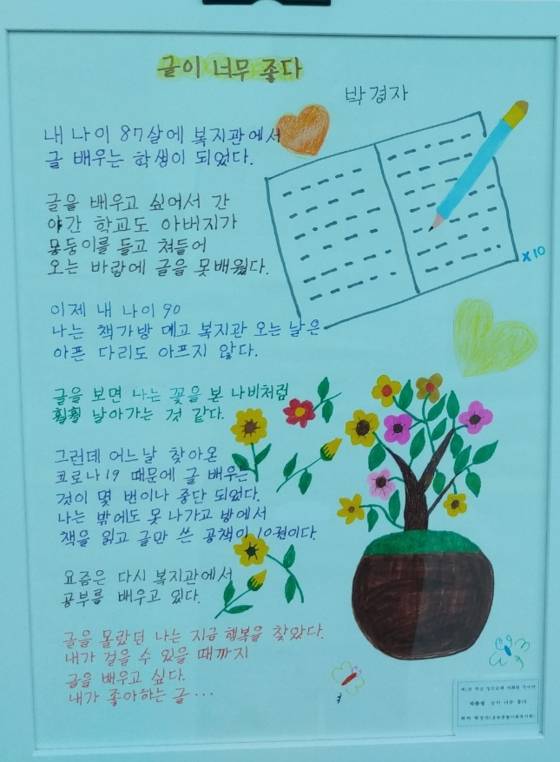 글이 너무 좋다
박경자
내 나이 87살에 복지관에서
글 배우는 학생이 되었다.
글을 배우고 싶어서 간
야간 학교도 아버지가
몽둥이를 들고 쳐들어
오는 바람에 글을 못배웠다.
이제 내 나이 90
나는 책가방 메고 복지관 오는 날은
아픈 다리도 아프지 않다.
글을 보면 나는 꽃을 본 나비처럼
훨훨 날아가는 것 같다.
그런데 어느날 찾아온
코로나19 때문에 글 배우는
것이 몇 번이나 중단 되었다.
나는 밖에도 못 나가고 방에서
책을 읽고 글만 쓴 공책이 10권이다.
요즘은 다시 복지관에서
공부를 배우고 있다.
글을 몰랐던 나는 지금 행복을 찾았다.
내가 걸을 수 있을 때까지
글을 배우고 싶다.
내가 좋아하는 글...
x10